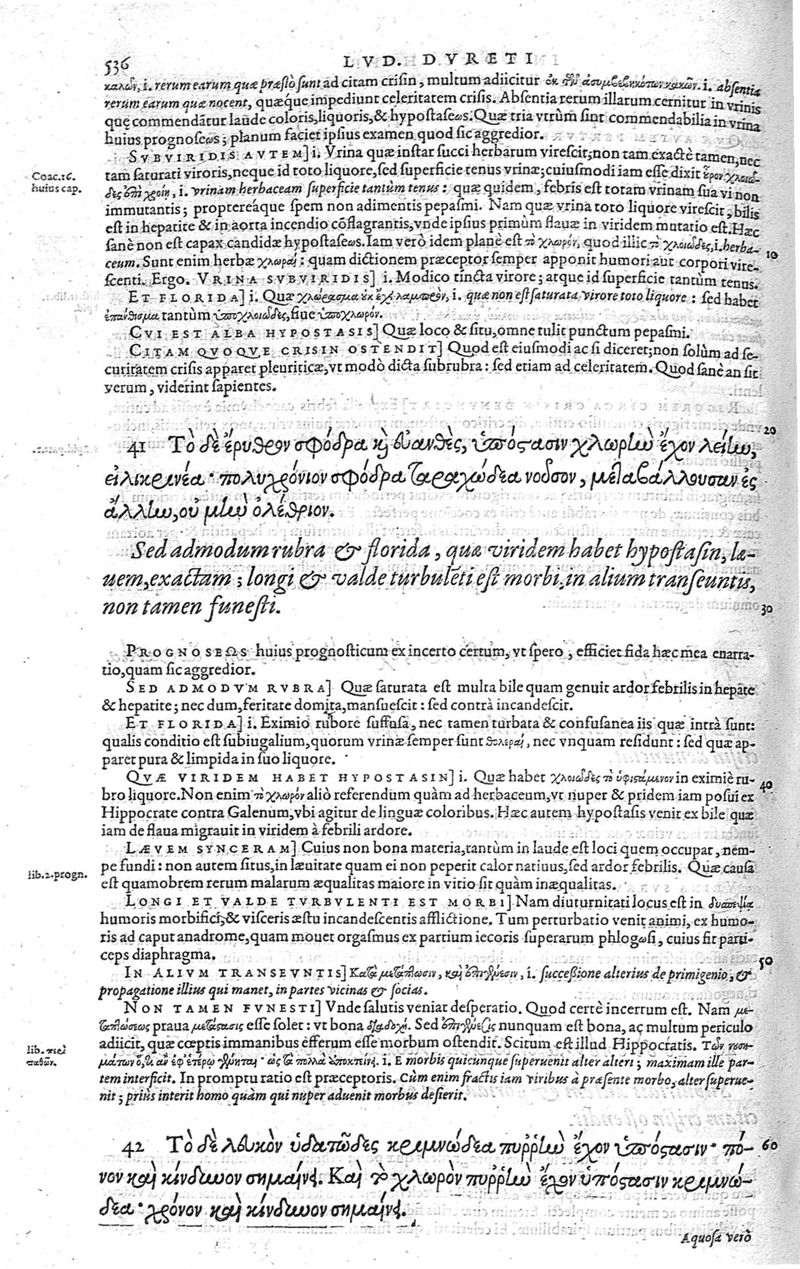 536
LVD. DVRETI
καλῶν, i. rerum earum quæ præstò sunt ad citam crisin, multum adiicitur ἐκ τῶν ἀσυμβεβηκότων κακῶν. i. absentia
rerum earum quæ nocent, quæque impediunt celeritatem crisis. Absentia rerum illarum cernitur in vrinis
que commendãtur laude coloris, liquoris, & hypostaseωs. Quæ tria vtrùm sint commendabilia in vrina
huius prognoseωs; planum faciet ipsius examen quod sic aggredior.
SVBVIRIDIS AVTEM] i. Vrina quæ instar succi herbarum virescit, non tam exactè tamen, nec
Coac. 16.
huius cap.
tam saturati viroris, neque id toto liquore, sed superficie tenus vrinæ; cuiusmodi iam esse dixit χλοιώ-
δες ἐπὶ χροίη, i. vrinam herbaceam superficie tantùm tenus: quæ quidem, febris est totam vrinam sua vi non
immutantis; proptereáque spem non adimentis pepasmi. Nam quæ vrina toto liquore virescit, bilis
est in hepatite & in aorta incendio cõflagrantis, vnde ipsius primùm flauæ in viridem mutatio est. Hæc
sanè non est capax candidæ hypostaseωs. Iam verò idem planè est τὸ χλωρόν, quod illic τὸ χλοιῶδες, i. herba-
10
ceum. Sunt enim herbæ χλωραί: quam dictionem præceptor semper apponit humori aut corpori vire-
scenti. Ergo. VRINA SVBVIRIDIS] i. Modico tincta virore; atque id superficie tantùm tenus.
ET FLORIDA] i. Quæ χλωρασμα ἐκ λαμπρὸν, i. quæ non est saturata virore toto liquore: sed habet
ἐπάνθισμα tantùm ὑποχλοιῶδες, siue ὑπόχλωρον.
CVI EST ALBA HYPOSTASIS] Quæ loco & situ, omne tulit punctum pepasmi.
CITAM QVOQVE CRISIN OSTENDIT] Quod est eiusmodi ac si diceret; non solùm ad se-
curitatem crisis apparet pleuriticæ, vt modò dicta subrubra: sed etiam ad celeritatem. Quod sanè an sit
verum, viderint sapientes.
20
41 Τὸ δὲ ἐρυθρὸν σφόδρα καὶ εὐανθὲς, ὑπόστασιν χλωρὴν ἔχον λείην,
εἰλικρινέα· πολυχρόνιον σφόδρα ταραχώδεα νοῦσον, μεταβάλλουσαν ἐς
ἄλλην, οὐ μὴν ὀλέθριον.
Sed admodum rubra & florida, quæ viridem habet hypostasin, læ-
uem, exactam; longi & valde turbulẽti est morbi, in alium transeuntis,
non tamen funesti.
30
PROGNOSEΩS huius prognosticum ex incerto certum, vt spero, efficiet fida hæc mea enarra-
tio, quam sic aggredior.
SED ADMODVM RVBRA] Quæ saturata est multa bile quam genuit ardor febrilis in hepate
& hepatite; nec dum, feritate domita, mansuescit: sed contrà incandescit.
ET FLORIDA] i. Eximio rubore suffusa, nec tamen turbata & confusanea iis quæ intrà sunt:
qualis conditio est subiugalium, quorum vrinæ semper sunt θολεραί, nec vnquam residunt: sed quæ ap-
paret pura & limpida in suo liquore.
QVÆ VIRIDEM HABET HYPOSTASIN] i. Quæ habet χλοιῶδες τὸ ὑφιστάμενον in eximiè ru-
40
bro liquore. Non enim τὸ χλωρὸν aliò referendum quàm ad herbaceum, vt nuper & pridem iam posui ex
Hippocrate contra Galenum, vbi agitur de linguæ coloribus. Hæc autem hypostasis venit ex bile quæ
iam de flaua migrauit in viridem à febrili ardore.
LÆVEM SYNCERAM] Cuius non bona materia, tantùm in laude est loci quem occupat, nem-
lib. 2. progn.
pe fundi: non autem situs, in læuitate quam ei non peperit calor natiuus, sed ardor febrilis. Quæ causa
est quamobrem rerum malarum æqualitas maiore in vitio sit quàm inæqualitas.
LONGI ET VALDE TVRBVLENTI EST MORBI] Nam diuturnitati locus est in δυσπεψίᾳ
humoris morbifici, & visceris æstu incandescentis afflictione. Tum perturbatio venit animi, ex humo-
ris ad caput anadrome, quam mouet orgasmus ex partium iecoris superarum phlogωsi, cuius fit parti-
ceps diaphragma.
50
IN ALIVM TRANSEVNTIS] Κατὰ μετάπτωσιν, καὶ ἐπιγέννεσιν, i. successione alterius de primigenio, &
propagatione illius qui manet, in partes vicinas & socias.
NON TAMEN FVNESTI] Vnde salutis veniat desperatio. Quod certè incertum est. Nam με-
ταπτώσεως praua μετάστασις esse solet: vt bona διαδοχή. Sed ἐπιγέννεσις nunquam est bona, ac multum periculo
adiicit, quæ cœptis immanibus efferum esse morbum ostendit. Scitum est illud Hippocratis. Τῶν νοση-
lib. περὶ
παθῶν.
μάτων ὅ, τι ἂν ἐφ' ἑτέρῳ γένηται· ὡς τὰ πολλὰ ἀποκτείνει. i. E morbis quicunque superuenit alter alteri; maximam ille par-
tem interficit. In promptu ratio est præceptoris. Cùm enim fractus iam viribus à præsente morbo, alter superue-
nit; priùs interit homo quàm qui nuper aduenit morbus desierit.
60
42 Τὸ δὲ λευκὸν ὑδατῶδες κριμνώδεα πυῤῥὴν ἔχον ὑπόστασιν· πό-
νον καὶ κίνδυνον σημαίνει. Καὶ τὸ χλωρὸν πυῤῥὴν ἔχον ὑπόστασιν κριμνώ-
δεα· χρόνον καὶ κίνδυνον σημαίνει.
Aquosa verò